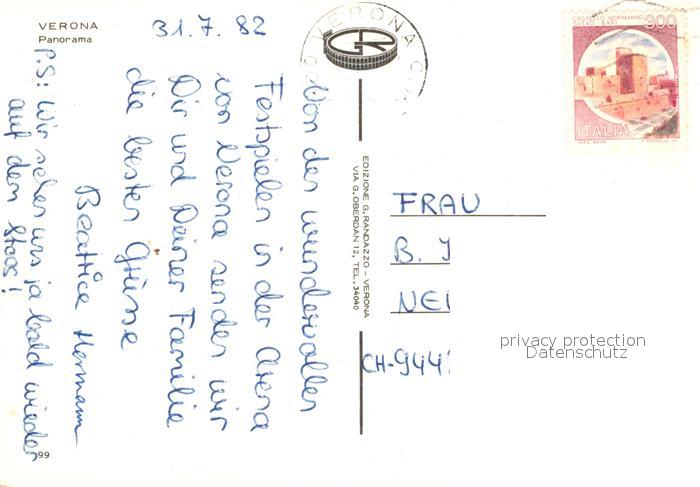 VERONA
Panorama
31.7.82
Von den wundervollen
Festspielen in der Arena
von Verona senden wir
Dir und Deiner Familie
die besten Grüsse
Beatrice Hermann
P.S: Wir sehen uns ja bald wieder
auf dem Stoos!
99
VERONA
GR
EDIZIONE G. RANDAZZO - VERONA
VIA G. OBERDAN 12, TEL. 34040
CASTELLO NORMANNO
SVEVO BARI
300
ITALIA
FRAU
B. J
NEI
CH-944
privacy protection
Datenschutz